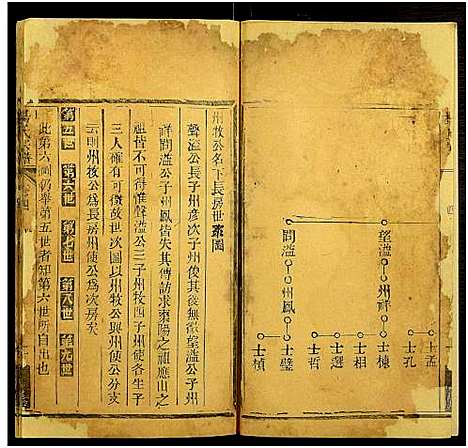 望溢
州祥
士孟
士孔
士棟
士相
士選
士哲
問溢
州鳳
士璧
士楨
州牧公名下長房世系圖
聲溢公長子州彥次子州俊其後無徵望溢公子州
祥問溢公子州鳳皆失其傳訪求棗陽之祖應山之
祖皆不可得惟聲溢公三子州牧四子州使各生子
三人確有可稽故世次圖以州牧公與州使公分支
云則州牧公為長房州使公為次房矣
第五世 第六世 第七世 第八世 第九世
此第六圖仍舉第五世者知第六世所自出也